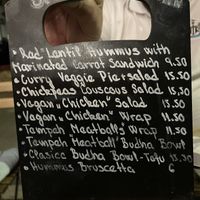 • Red Lentil Hummus with
Marinated Carrot Sandwich 9.50
• Curry Veggie Piersalad 15.50
• Chickpeas Couscous Salad 15.50
• Vegan "Chicken" Salad 15.50
• Vegan "Chicken" Wrap 11.50
• Tempah Meatballs' Wrap 11.50
• Tempah Meatball' Budha Bowl
• Clasicc Budha Bowl - Tofu 15.50
• Hummus Bruscetta 6